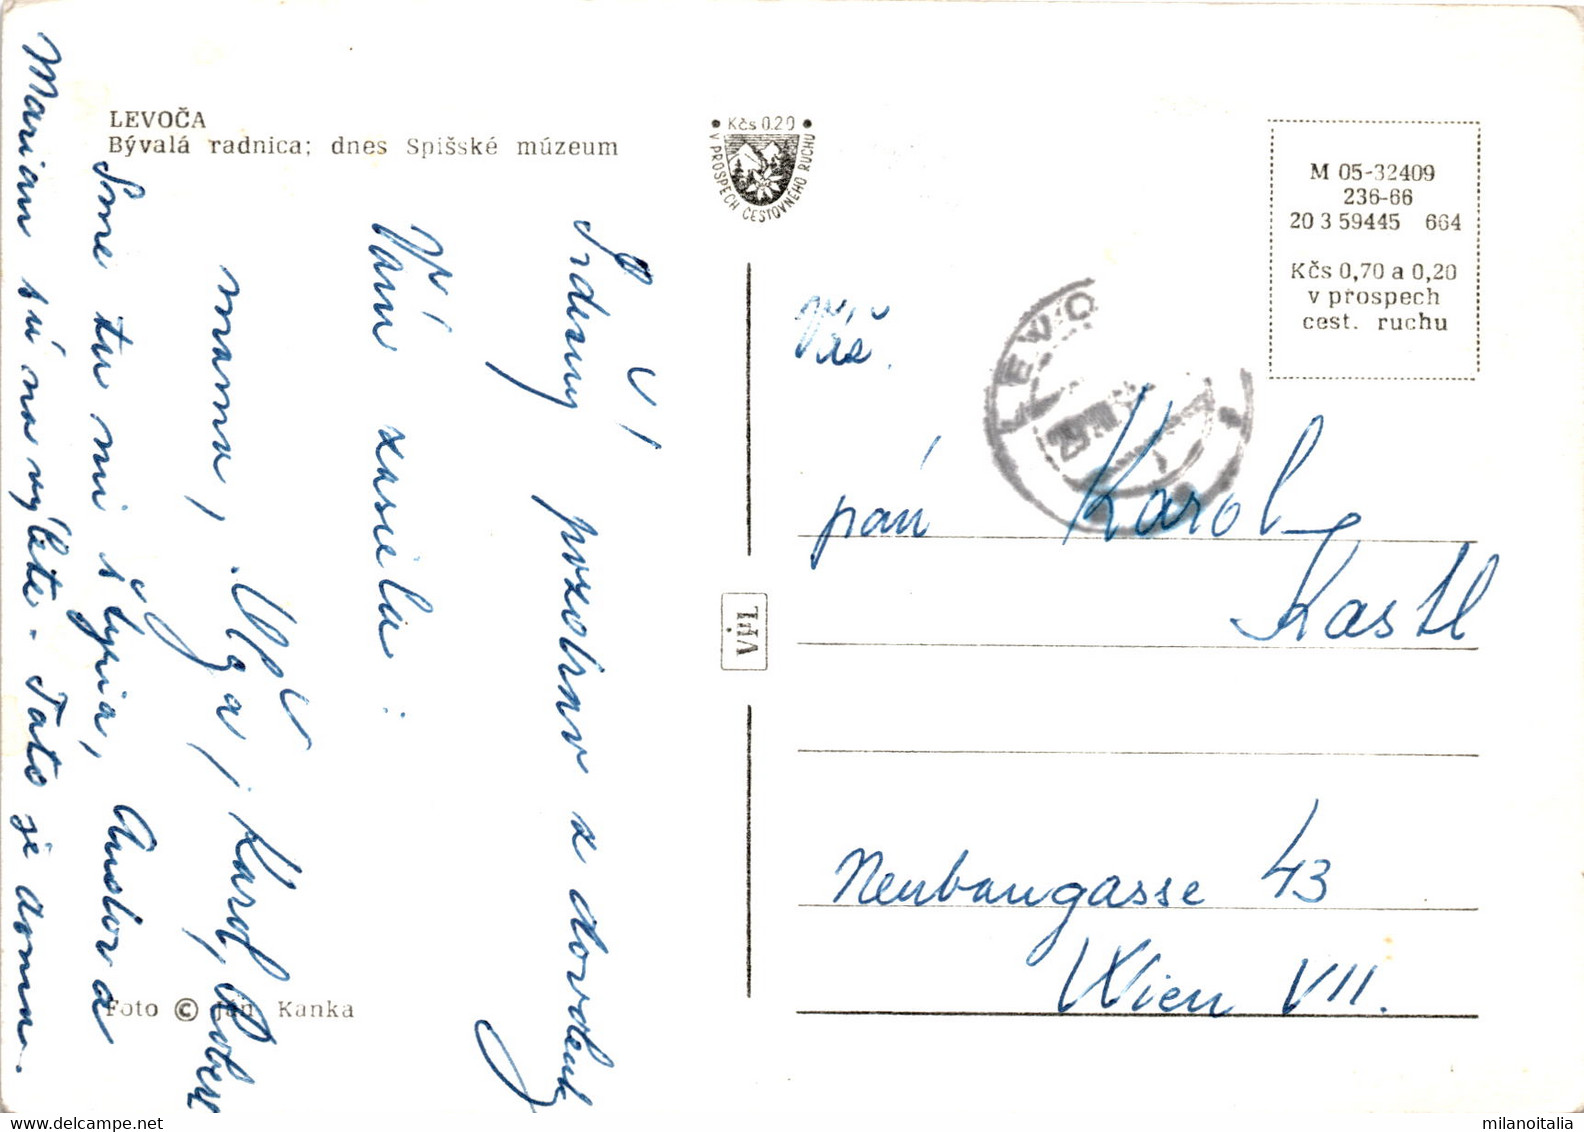 LEVOČA
Bývalá radnica; dnes Spišské múzeum
Kčs 0.20
V PROSPECH CESTOVNÉHO RUCHU
M 05-32409
236-66
20 3 59445 664
Kčs 0,70 a 0,20
v prospech
cest. ruchu
LEVO
29
VČL
Srdečný pozdrav z dovolenky
Vám zasiela
mama, Oľga, Karol, Robert
Sme tu my štyria, a
Marian sú na výlete. Tato je doma.
Foto © Ján Kanka
Váž.
pán Karol
Kastl
Neubaugasse 43
Wien VII.
milanoitalia